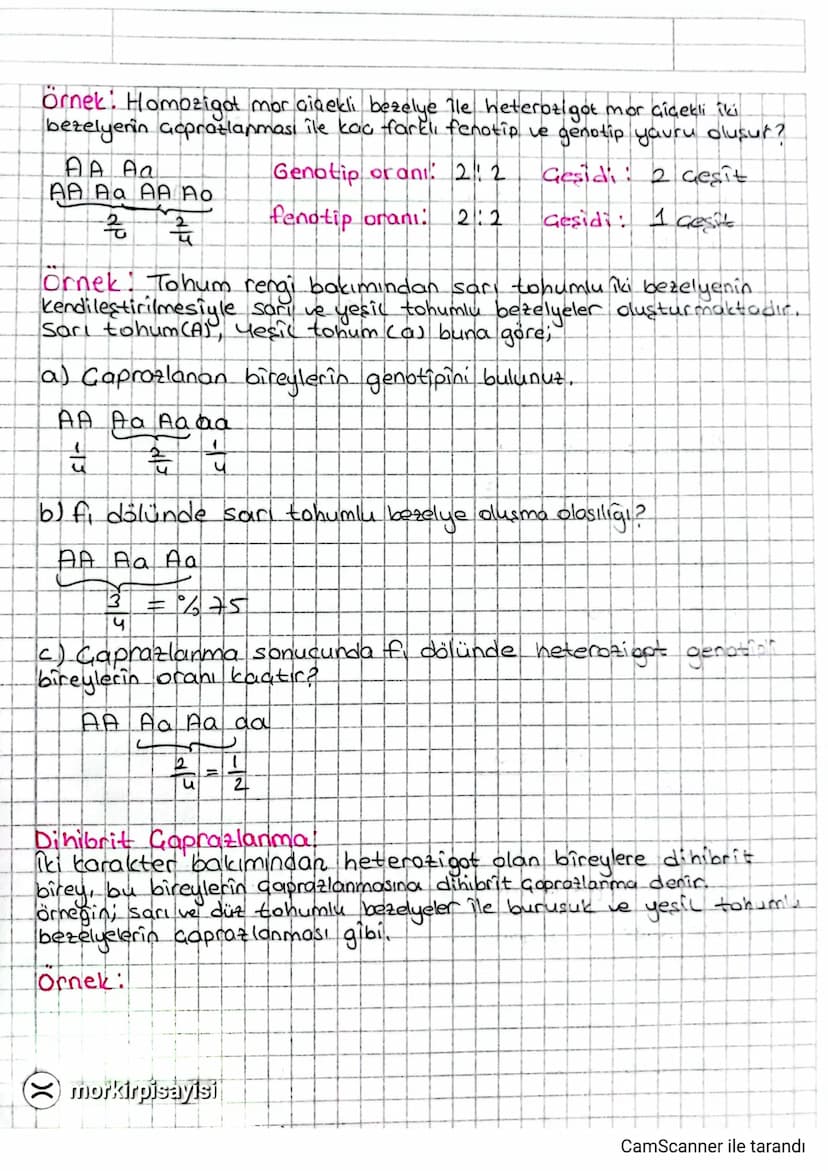 Örnek: Homozigot mor çiçekli bezelye ile heterozigot mor çiçekli iki
bezelyenin çaprazlanması ile kaç farklı fenotip ve genotip yavru oluşur?
AA Aa
AA Aa AA Aa
2/4 2/4
Genotip oranı: 2:2 Çeşidi: 2 çeşit
fenotip oranı: 2:2 Çeşidi: 1 çeşit
Örnek: Tohum rengi bakımından sarı tohumlu iki bezelyenin
kendileştirilmesiyle sarı ve yeşil tohumlu bezelyeler oluşturmaktadır.
Sarı tohum(A), Yeşil tohum(a) buna göre;
a) Çaprazlanan bireylerin genotipini bulunuz.
AA Aa Aa aa
1/4 2/4 1/4
b) f1 dölünde sarı tohumlu bezelye oluşma olasılığı?
AA Aa Aa
3/4 = %75
c) Çaprazlanma sonucunda f1 dölünde heterozigot genotipli
bireylerin oranı kaçtır?
AA Aa Aa aa
2/4 = 1/2
Dihibrit Çaprazlanma:
İki karakter bakımından heterozigot olan bireylere dihibrit
birey, bu bireylerin çaprazlanmasına dihibrit çaprazlanma denir.
örneğin; sarı ve düz tohumlu bezelyeler ile buruşuk ve yeşil tohumlu
bezelyelerin çaprazlanması gibi.
Örnek:
morkirpisayisi
CamScanner ile tarandı